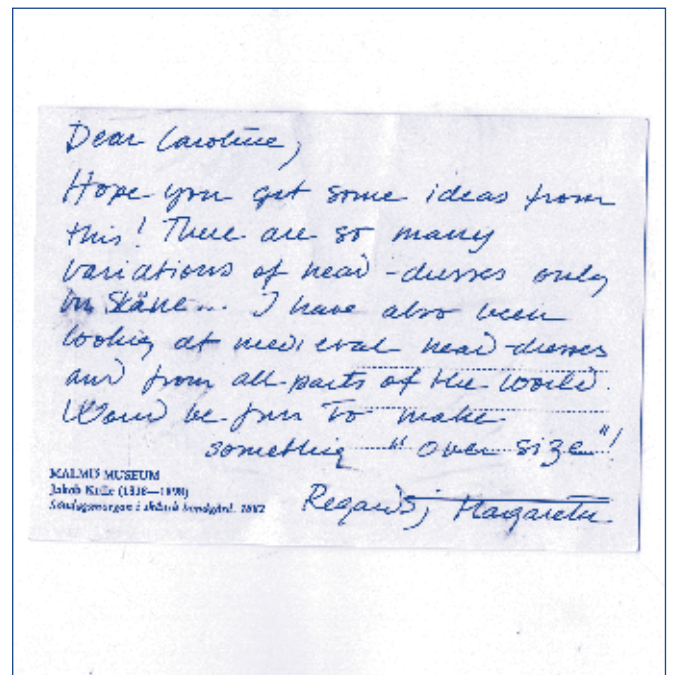 Dear Caroline,
Hope you get some ideas from
this! There are so many
variations of head-dresses only
in Skåne... I have also been
looking at medieval head-dresses
and from all parts of the world.
Would be fun to make
something "over size"!
MALMÖ MUSEUM
Jakob Kulle (1838—1898)
Söndagsmorgon i skånsk bondgård. 1882
Regards, Margareta